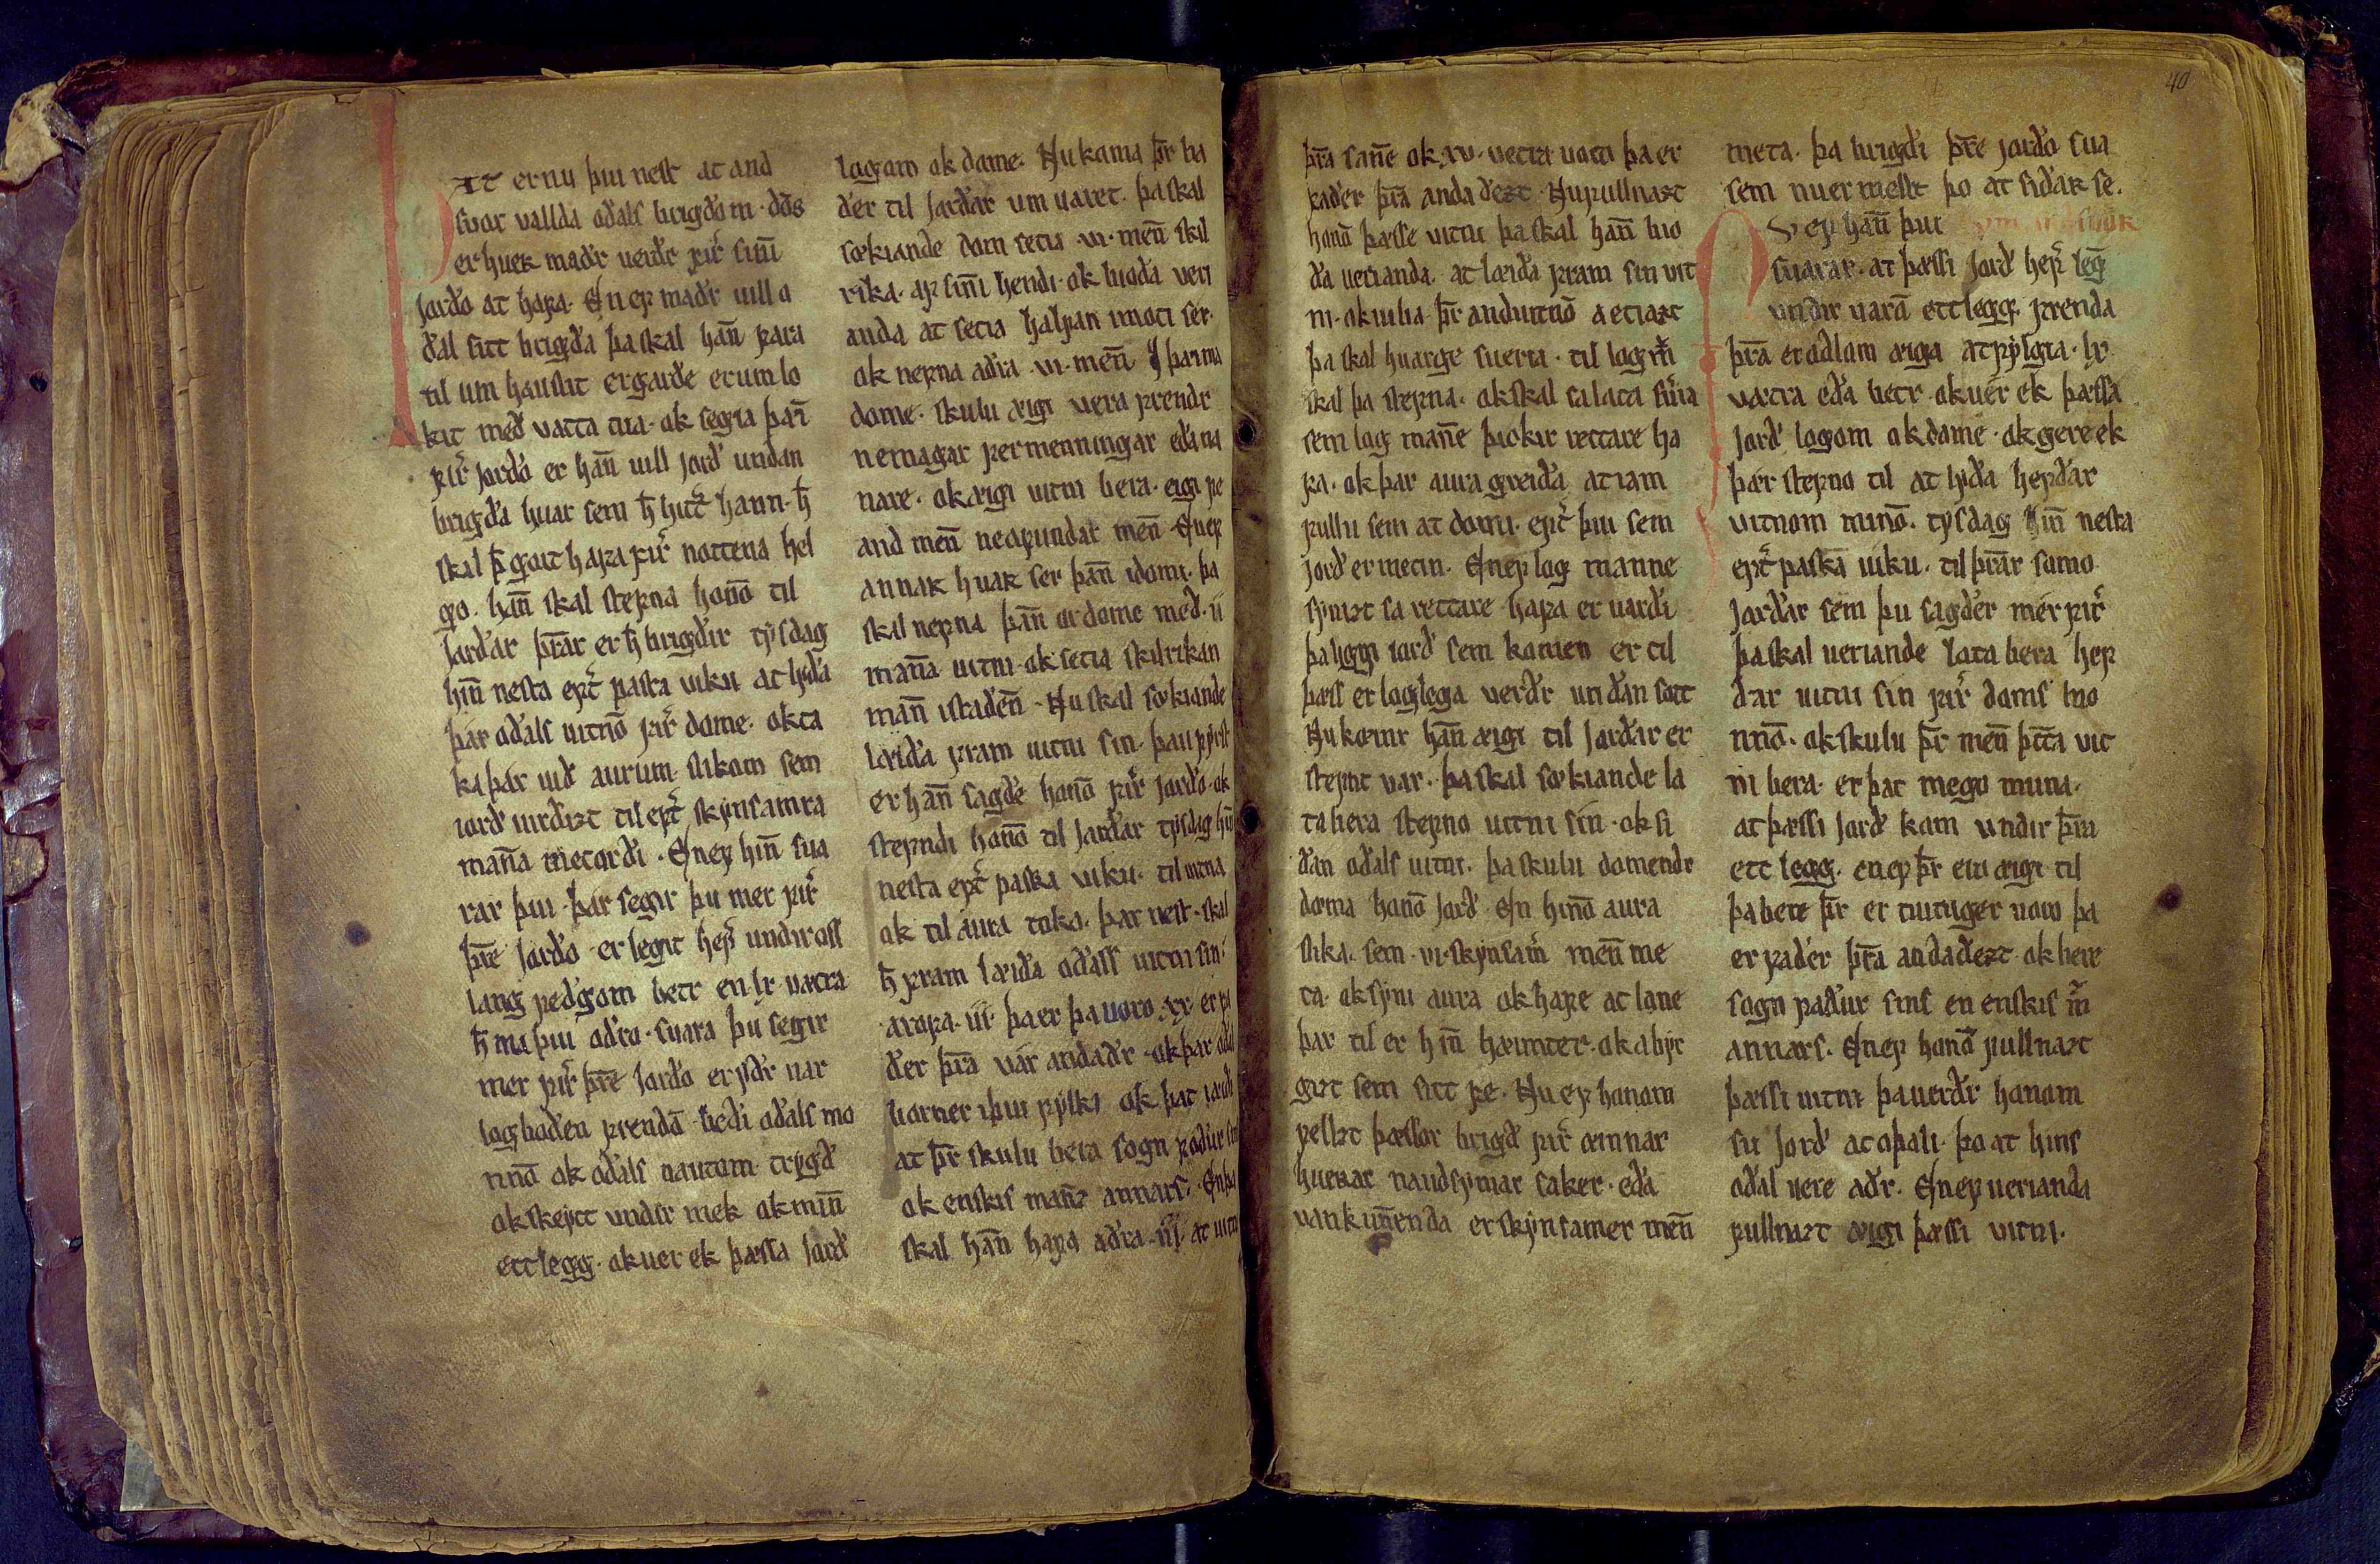 at er nu þui nest at and
suor vallda oðals brigðom. oðals
er huer maðr uerðr firir sinni
jorðo at hafa. En ef maðr uill o
ðal sitt brigða þa skal hañ fara
til um haustit er garðe er um lo
kit með vatta tua. ok segia þañ
firir jorðo er hañ uill jorð undan
brigða huar sem h̄ hitt̄ hann. h̄
skal þ̄ gort hafa firir nottena hel
go. hañ skal stefna honō til
jarðar þr̄ar er h̄ brigðir tysdag
hiñ nesta ept̄ paska uiku at lyða
þar oðals uitnō firir dome. ok ta
ka þar uið aurum slikom sem
iorð uirðizt til ept̄ skynsamra
mañа metorði. En ef hiñ sua
rar þui. þar segir þu mer firir
þr̄e jorðo er legit hef̄ undir oss
lang feðgom betr en lx. vætra
h̄ ma þui aðro suara þu segir
mer firir þr̄e jorðo er fyðr uar
logboðen frendā bæði oðals mo
nnō ok oðals nautom trygð
ok skeytt undir mek ok miñ
ettlegg. ok uer ek þæssa jorð
logom ok dome. Nu koma þr̄ ba
ðer til jarðar um uaret. þa skal
sœkiande dom setia .vi. meñ skil
rika. af sinni hendi. ok bioða veri
anda at setia halfan imoti ser.
ok nefna aðra .vi. meñ I þæima
dome. skulu æigi vera frendr
ne magar fermenningar eða na
nare. ok æigi uitni bera. eigi fe
and meñ ne ofundar meñ En ef
annar huar ser þañ i domi. þa
skal nefna þañ or dome með .ii
mañа uitni. ok setia skilrikan
mañ i staðen. Nu skal sœkiande
læiða fram uitni sin. þau fyrst
er hañ sagðe honō firir jorðo. ok
stefndi honō til jarðar tysdag hiñ
nesta ept̄ paska uiku. til uitna
ok til aura toko. þar nest. skal
h̄ fram læiða oðals uitni sin.
arofa .iii. þa er þa uoro .xx. er fa
ðer þr̄a var andaðr. ok þar oðal
borner i þui fylki ok þat
at þr̄ skulu bera sogn foður sins
ok enskis mañz annars. En þa
skal hañ hafa aðra .ii. at uitni
þr̄a sañe ok .xv. vetra uoro þa er
faðer þr̄a andaðezt. Nu fullnazt
honō þæsse uitni þa skal hañ bio
ða uerianda. at læiða fram sin vit
ni. ok iulia þr̄ anduitnō a etiazt
þa skal huarge sueria. til logm̄
skal þa stefna. ok skal sa lata suæria
sem log manne þickir rettare ha
fa. ok þar aura greiða at iam
fullu sem at domi. ept̄ þui sem
jorð er metin. En ef log manne
synizt sa rettare hafa er varði
þa liggi iorð sem komen er til
þæss er loglega verðr undan sott
Nu kœmr hañ æigi til jarðar er
stefnt var. þa skal sœkiande la
ta bera stefno uitni sin. ok si
ðan oðals uitni. þa skulu domendr
dœma honō jorð En hinō aura
slika. sem .vi. skynsam̄ meñ me
ta. ok syni aura ok hafe at lane
þar til er hiñ hæimter. ok abyr
gizt sem sitt fe. Nu ef honom
fellzt þæssor brigð firir æinnar
huerar nauðsyniar saker. eða
vankuñenda er skynsamer meñ
meta. þa brigði þr̄e jorðo sua
sem nu er mellt þo at siðar se.
ef hañ þui
suarar. at þæssi jorð hef̄ leḡ
undir uarā ettlegg. frenda
þr̄a er oðlom æiga at fylgia. lx
vætra eða betr. ok uer ek þæssa
jorð logom ok dome. ok gere ek
þær stefno til at lyða hefðar
uitnom minō. tysdag hiñ nesta
ept̄ paska uiku. til þr̄ar samo
jarðar sem þu sagðer mer firir
þa skal ueriande lata bera hef
ðar uitni sin firir doms mo
nnō. ok skulu þr̄ meñ þt̄ta vit
ni bera. er þat mego muna.
at þæssi jorð kom undir þr̄a
ett legg. en ef þr̄ eru æigi til
þa bere þr̄ er tuituger uoro þa
er faðer þr̄a andaðezt. ok bere
sogn faður sins en enskis m̄
annars. En ef honō fullnazt
þæssi uitni þa uerðr honom
su jorð at oþali. þo at hins
oðal uere aðr. En ef uerianda
fullnazt æigi þæssi uitni.
40